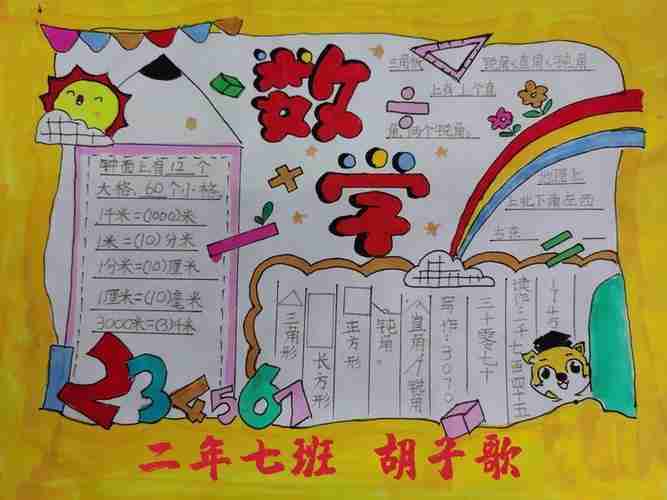 数学
三角板
锐角<直角<钝角
上有1个直
角,两个锐角。
钟面上有12个
大格,60个小格
1千米=(1000)米
1米=(10)分米
1分米=(10)厘米
1厘米=(10)毫米
3000米=(3)千米
地图上
上北下南左西
右东
三角形
长方形
正方形
钝角
直角
锐角
写作:3070
三千零七十
读作:二千七百四十五
234567
二年七班 胡子歌